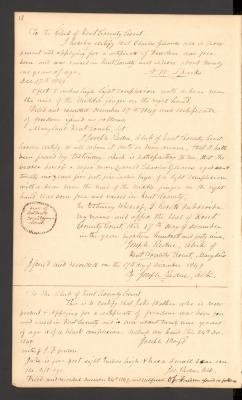 To the Clerk of Kent County Court
I hereby certify that Charles is now
present and applying for a certificate of freedom was free
born and was raised in Kent County and is now about twenty
one years of age.
Dec. 17th 1849
5 feet inches high light complexion with a scar near
the nail of the middle finger on the right hand
Issued and recorded December 17th 1849 and certificate
of freedom issued as follows
Maryland Kent County, Sct.
I Joseph Redue, Clerk of Kent County Court,
hereby certify to all whom it doth or may concern, that it hath
been proved by testimony, which is satisfactory to me, that the
bearer hereof a negro man named Charles aged about
twenty one years five feet inches high of a light complexion
with a scar near the nail of the middle finger on the right
hand was born free and raised in Kent County.
In testimony whereof, I hereto subscribe
my name and affix the seal of Kent
County Court, this 17th day of December
in the year eighteen hundred and forty nine
Joseph Redue, Clerk of
Kent County Court, Maryland
Issued and recorded on the 17th day of December 1849
By Joseph Redue, Clk.
To the Clerk of Kent County Court
This is to certify that John who is now
present & applying for a certificate of freedom was born free
and raised in Kent County and is now about twenty one years
of age of a black complexion. Witness my hand this 24th Dec.
1849
Joseph Boyd
John is five feet eight inches high & has a small scar over
the left eye
Jos. Redue, Clk.